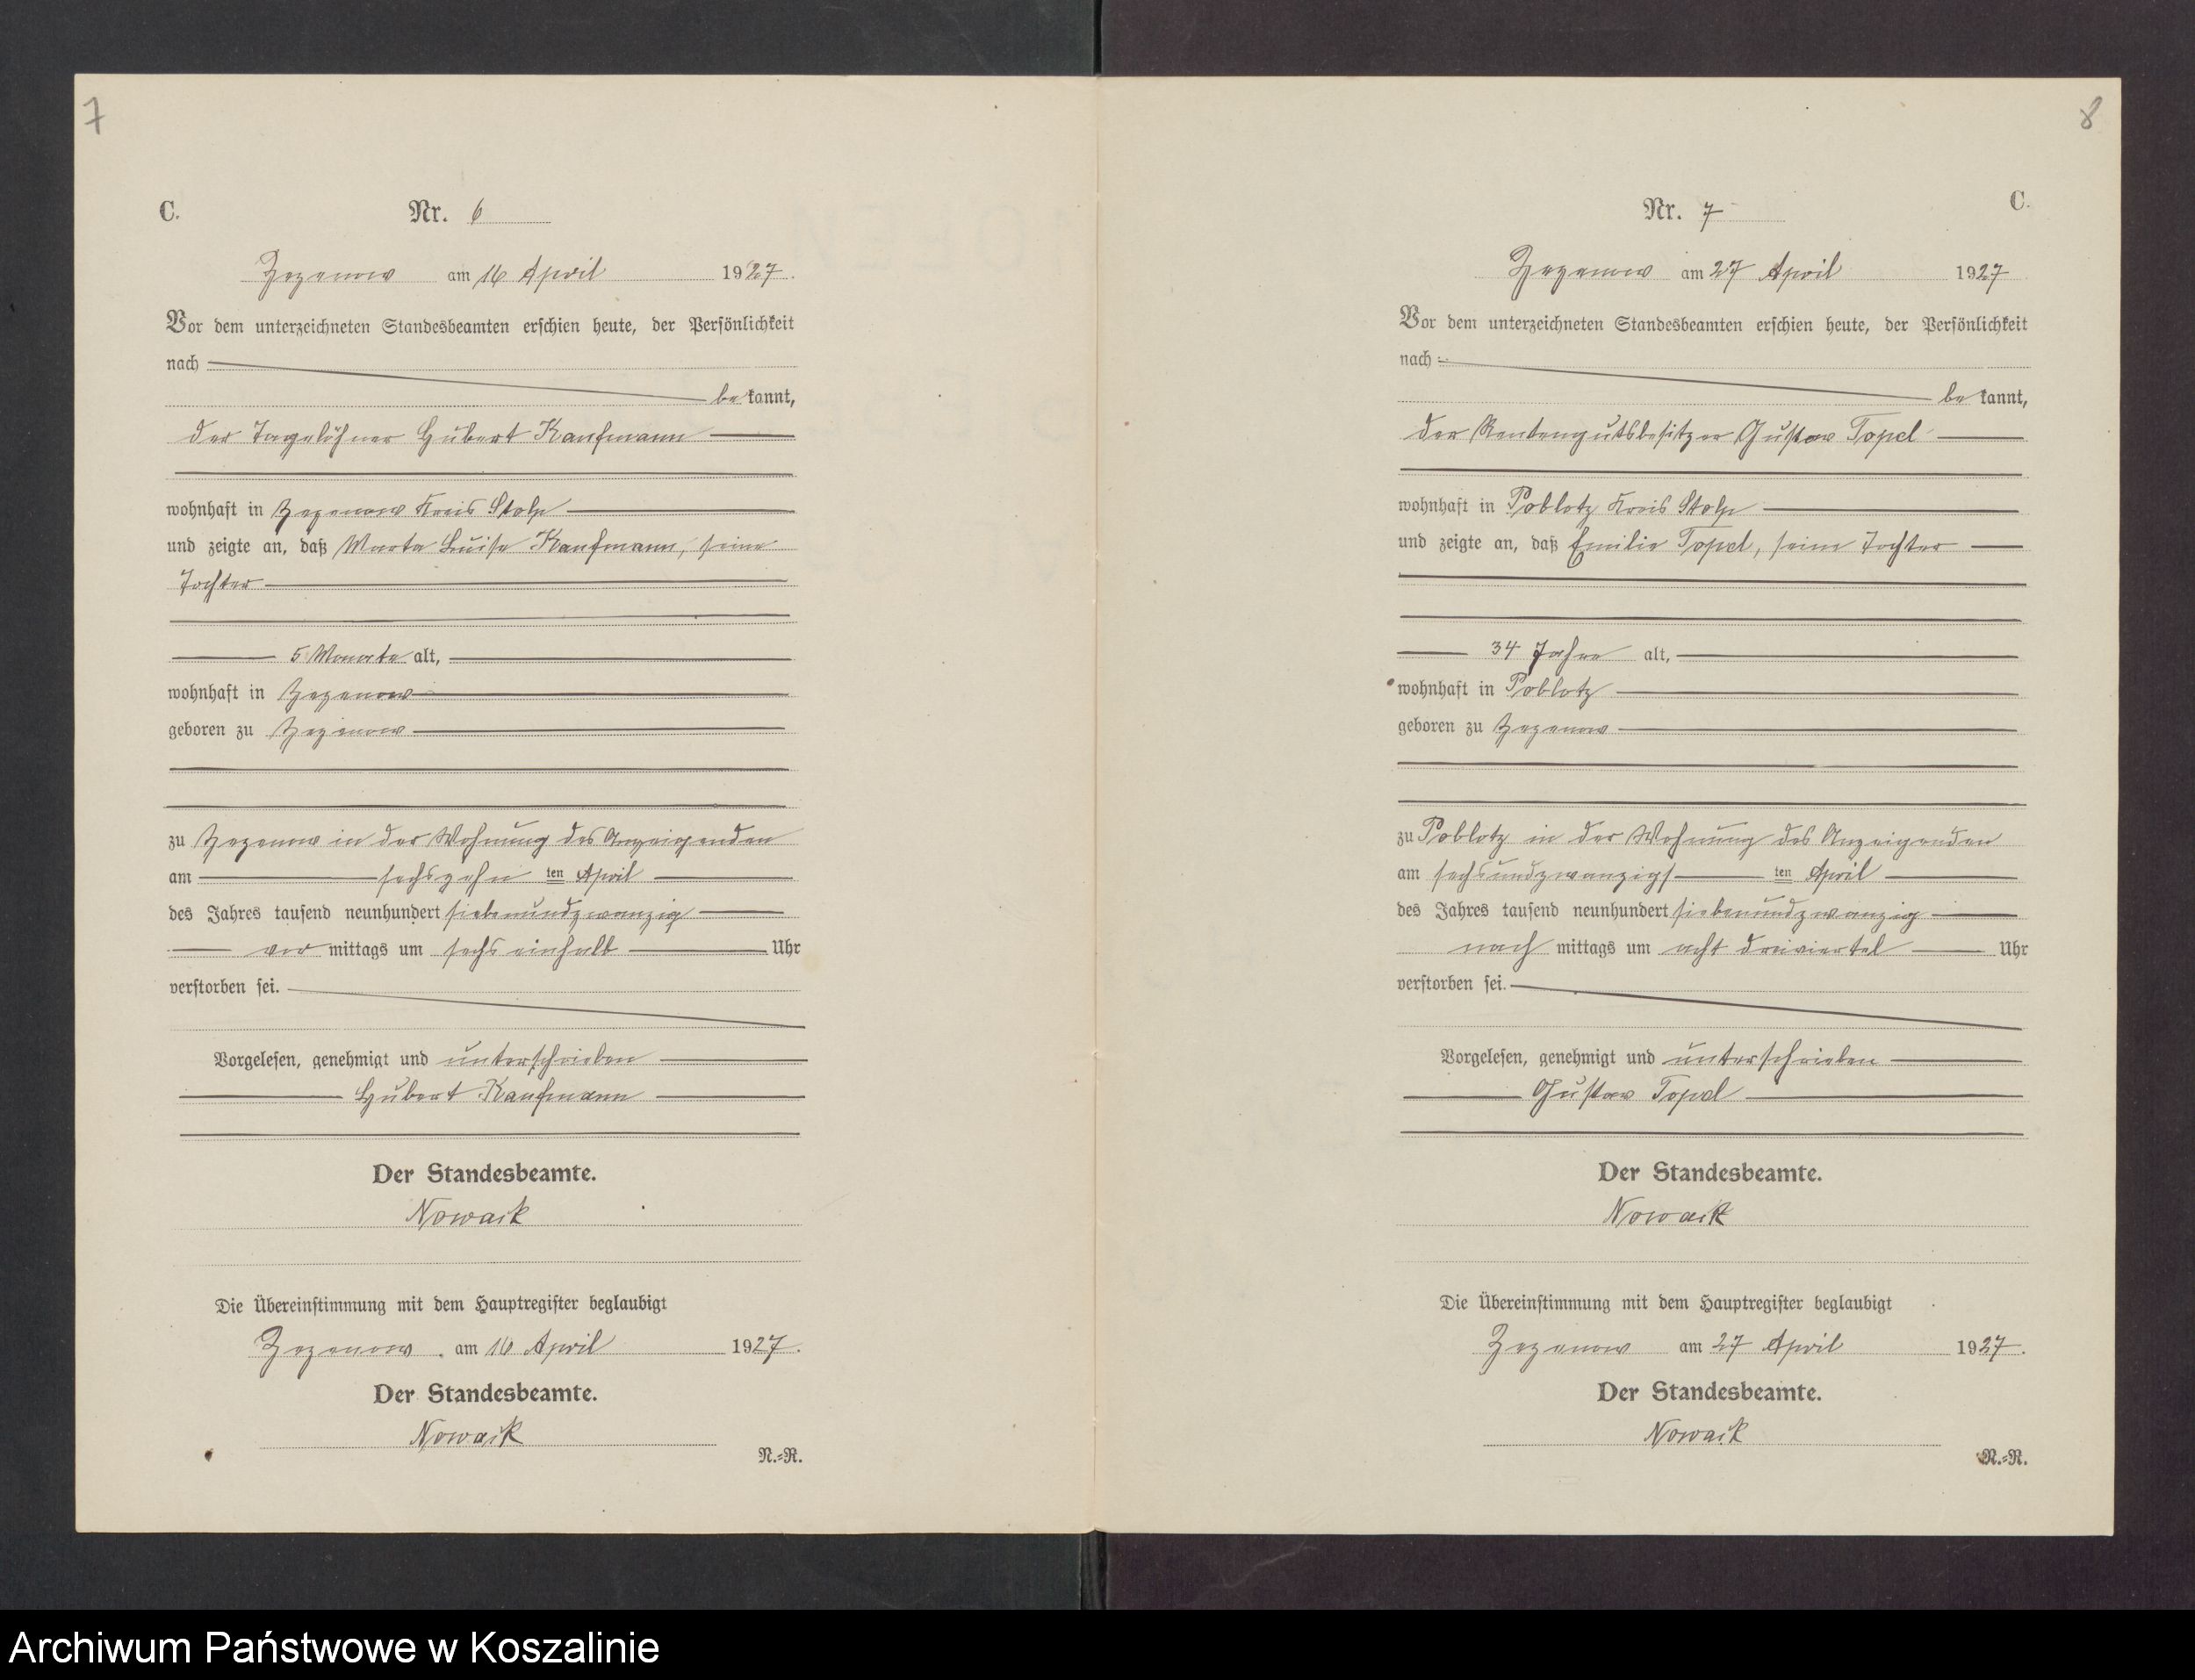 7
C.
Nr. 6
Zezenow am 16 April 1927.
Vor dem unterzeichneten Standesbeamten erschien heute, der Persönlichkeit
nach
be kannt,
der Tagelöhner Hubert Kaufmann
wohnhaft in Zezenow Kreis Stolp
und zeigte an, daß Marta Luise Kaufmann, seine
Tochter
5 Monate alt,
wohnhaft in Zezenow
geboren zu Zezenow
zu Zezenow in der Wohnung des Anzeigenden
am sechszehn ten April
des Jahres tausend neunhundert siebenundzwanzig
vor mittags um sechs einhalb Uhr
verstorben sei.
Vorgelesen, genehmigt und unterschrieben
Hubert Kaufmann
Der Standesbeamte.
Nowack
Die Übereinstimmung mit dem Hauptregister beglaubigt
Zezenow. am 16 April 1927.
Der Standesbeamte.
Nowack
N.=R.
8
C.
Nr. 7
Zezenow am 27 April 1927
Vor dem unterzeichneten Standesbeamten erschien heute, der Persönlichkeit
nach
be kannt,
der Rentengutsbesitzer Gustav Topel
wohnhaft in Poblotz Kreis Stolp
und zeigte an, daß Emilie Topel, seine Tochter
34 Jahre alt,
wohnhaft in Poblotz
geboren zu Zezenow
zu Poblotz in der Wohnung des Anzeigenden
am sechsundzwanzigs ten April
des Jahres tausend neunhundert siebenundzwanzig
nach mittags um acht dreiviertel Uhr
verstorben sei.
Vorgelesen, genehmigt und unterschrieben
Gustav Topel
Der Standesbeamte.
Nowack
Die Übereinstimmung mit dem Hauptregister beglaubigt
Zezenow am 27 April 1927.
Der Standesbeamte.
Nowack
N.=R.
Archiwum Państwowe w Koszalinie